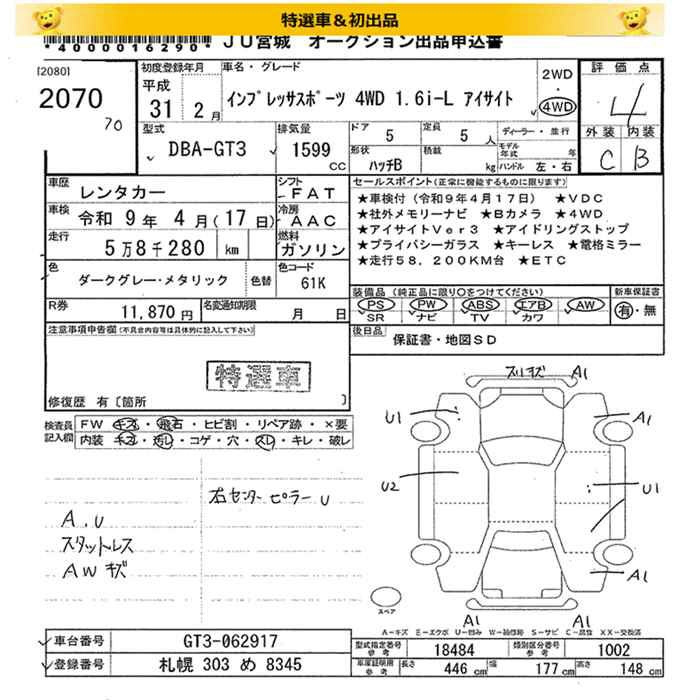 特選車＆初出品
*40000016290*
JU宮城 オークション出品申込書
[2080]
2070
70
初度登録年月
平成
31年 2月
車名・グレード
インプレッサスポーツ 4WD 1.6i-L アイサイト
2WD
・
4WD
評価点
4
外装 内装
C B
型式
DBA-GT3
排気量
1599
CC
ドア
5
定員
5人
ディーラー・並行
形状
ハッチB
積載
kg
モデル年式 年
ハンドル 左・右
車歴
レンタカー
シフト
FAT
車検
令和 9年 4月(17日)
冷房
AAC
走行
5万8千280 km
燃料
ガソリン
色
ダークグレー・メタリック
色替
色コード
61K
R券
11,870円
名変通知期限
月 日
セールスポイント(正常に機能するものに限ります)
★車検付(令和9年4月17日) ★VDC
★社外メモリーナビ ★Bカメラ ★4WD
★アイサイトVer3 ★アイドリングストップ
★プライバシーガラス ★キーレス ★電格ミラー
★走行58,200KM台 ★ETC
装備品(純正品に限り○をつけてください)
PS PW ABS エアB AW
SR ナビ TV カワ
新車保証書
有・無
後日品
保証書・地図SD
注意事項申告欄(不具合内容等は具体的に記入して下さい)
特選車
修復歴 有〔箇所 〕
検査員記入欄
FW キズ・飛石・ヒビ割・リペア跡・×要
内装 キズ・汚レ・コゲ・穴・スレ・キレ・破レ
右センターピラー U
A.U
スタットレス
AWキズ
スリキズ A1
U1 A1
U2 U1
A1
A1 A1
スペア
A-キズ E-エクボ U-凹み W-補修跡 S-サビ C-腐食 XX-交換済
車台番号
GT3-062917
登録番号
札幌 303 め 8345
型式指定番号
参考
18484
類別区分番号
参考
1002
車庫証明用
参考
長さ
446 cm
幅
177 cm
高さ
148 cm